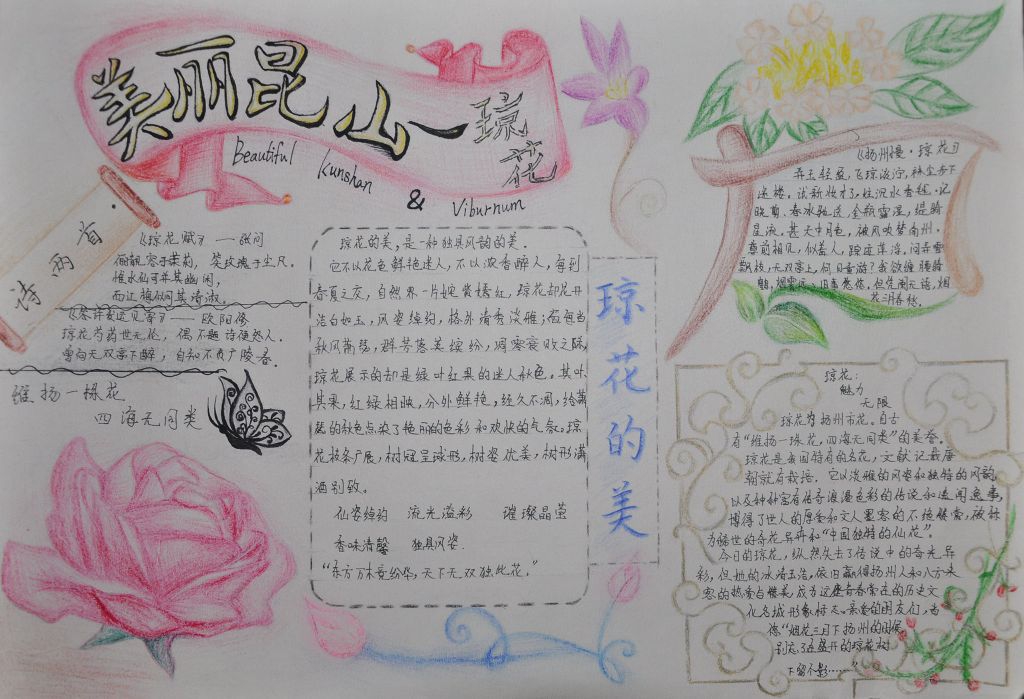 美丽昆山—琼花
Beautiful Kunshan & Viburnum
诗两首
《琼花赋》——张问
俪靓容于茉莉，笑玫瑰于尘凡，
惟水仙可并其幽闲，
而江梅似同其清淑。
《答许发运见寄》——欧阳修
琼花芍药世无伦，偶不题诗便怨人。
曾向无双亭下醉，自知不负广陵春。
维扬一株花
四海无同类
琼花的美，是一种独具风韵的美．
它不以花色鲜艳迷人，不以浓香醉人，每到
春夏之交，自然界一片姹紫嫣红，琼花却花开
洁白如玉，风姿绰约，格外清秀淡雅；而每当
秋风萧瑟，群芳落英缤纷，凋零衰败之际，
琼花展示的却是绿叶红果的迷人秋色。其叶
其果，红绿相映，分外鲜艳，经久不凋，给萧
瑟的秋色点染了艳丽的色彩和欢快的气氛。琼
花枝条广展，树冠呈球形，树姿优美，树形潇
洒别致。
仙姿绰约 流光溢彩 璀璨晶莹
香味清馨 独具风姿．
“东方万木竞纷华，天下无双独此花。”
琼花的美
《扬州慢·琼花》
弄玉轻盈，飞琼淡泞，袜尘步下
迷楼。试新妆才了，炷沉水香毬。记
晓剪、春冰驰送，金瓶露湿，缇骑
星流。甚天中月色，被风吹梦南州。
尊前相见，似羞人、踪迹萍浮。问弄雪
飘枝，无双亭上，何日重游？
琼花：
魅力
无限
琼花为扬州市花。自古
有“维扬一株花，四海无同类”的美誉。
琼花是我国特有的名花，文献记载唐
朝就有栽培。它以淡雅的风姿和独特的风韵，
以及种种富有传奇浪漫色彩的传说和逸闻逸事，
博得了世人的厚爱和文人墨客的不绝赞赏，被称
为稀世的奇花异卉和“中国独特的仙花”。
今日的琼花，纵然失去了传说中的奇光异
彩，但她的冰清玉洁，依旧赢得扬州人和八方来
客的热爱与赞美，成为这座
化名城形象标志。亲爱的朋友们，当
您“烟花三月下扬州的时候，
别忘了在盛开的琼花树
下留个影……”